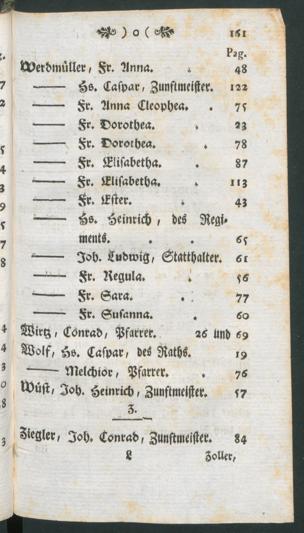 ) o ( 161
Pag.
Werdmüller, Fr. Anna. 48
—— Hs. Caspar, Zunftmeister. 122
—— Fr. Anna Cleophea. 75
—— Fr. Dorothea. 23
—— Fr. Dorothea. 78
—— Fr. Elisabetha. 87
—— Fr. Elisabetha. 113
—— Fr. Ester. 43
—— Hs. Heinrich, des Regi-
ments. 65
—— Joh. Ludwig, Statthalter. 61
—— Fr. Regula. 56
—— Fr. Sara. 77
—— Fr. Susanna. 60
Wirtz, Conrad, Pfarrer. 26 und 69
Wolf, Hs. Caspar, des Raths. 19
—— Melchior, Pfarrer. 76
Wüst, Joh. Heinrich, Zunftmeister. 57
Z.
Ziegler, Joh. Conrad, Zunftmeister. 84
L Zoller,